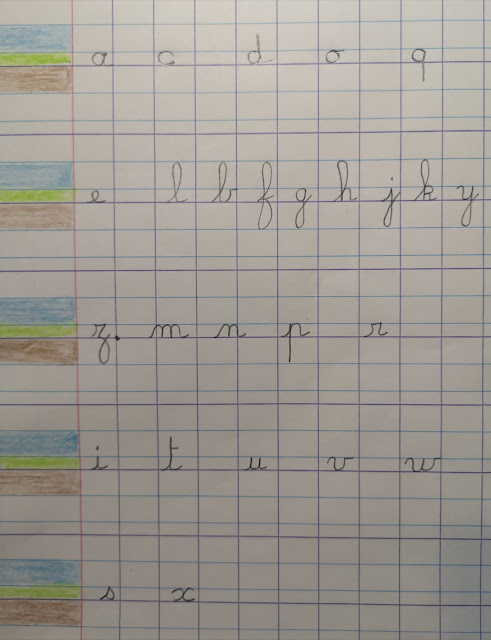 a c d o q
e l b f g h j k y
z. m n p r
i t u v w
s x